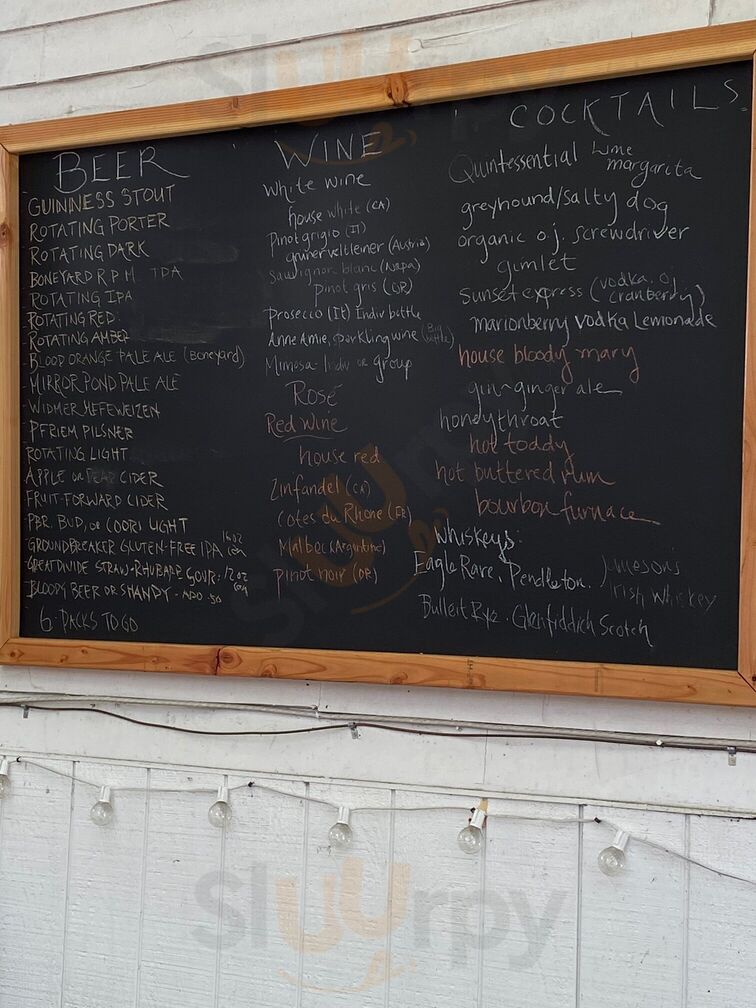 BEER
GUINNESS STOUT
ROTATING PORTER
ROTATING DARK
BONEYARD R.P.M. IDA
ROTATING IPA
ROTATING RED
ROTATING AMBER
BLOOD ORANGE PALE ALE (Boneyard)
MIRROR POND PALE ALE
WIDMER HEFEWEIZEN
PFRIEM PILSNER
ROTATING LIGHT
APPLE or PEAR CIDER
FRUIT-FORWARD CIDER
PBR, BUD, or COORS LIGHT
GROUNDBREAKER GLUTEN-FREE IPA 16oz can
GREAT DIVIDE STRAW-RHUBARB SOUR: 12oz can
BLOODY BEER OR SHANDY - ADD .50
6-PACKS TO GO
WINE
White wine
house white (CA)
Pinot grigio (It)
gruner veltleiner (Austria)
Sauvignon blanc (Napa)
Pinot gris (OR)
Prosecco (It) Indiv bottle
Anne Amie, sparkling wine (Big bottle)
Mimosa - Indiv or group
Rosé
Red Wine
house red
Zinfandel (CA)
Cotes du Rhone (FR)
Malbec (Argentine)
pinot noir (OR)
COCKTAILS
Quintessential Lime margarita
greyhound/salty dog
organic o.j. screwdriver
gimlet
sunset express (vodka, oj cranberry)
marionberry vodka Lemonade
house bloody mary
gin-ginger ale
honeythroat
hot toddy
hot buttered rum
bourbon furnace
Whiskeys:
Eagle Rare, Pendleton, Jameson's Irish Whiskey
Bulleit Rye. Glenfiddich Scotch
sluurpy
sluurpy
sluurpy